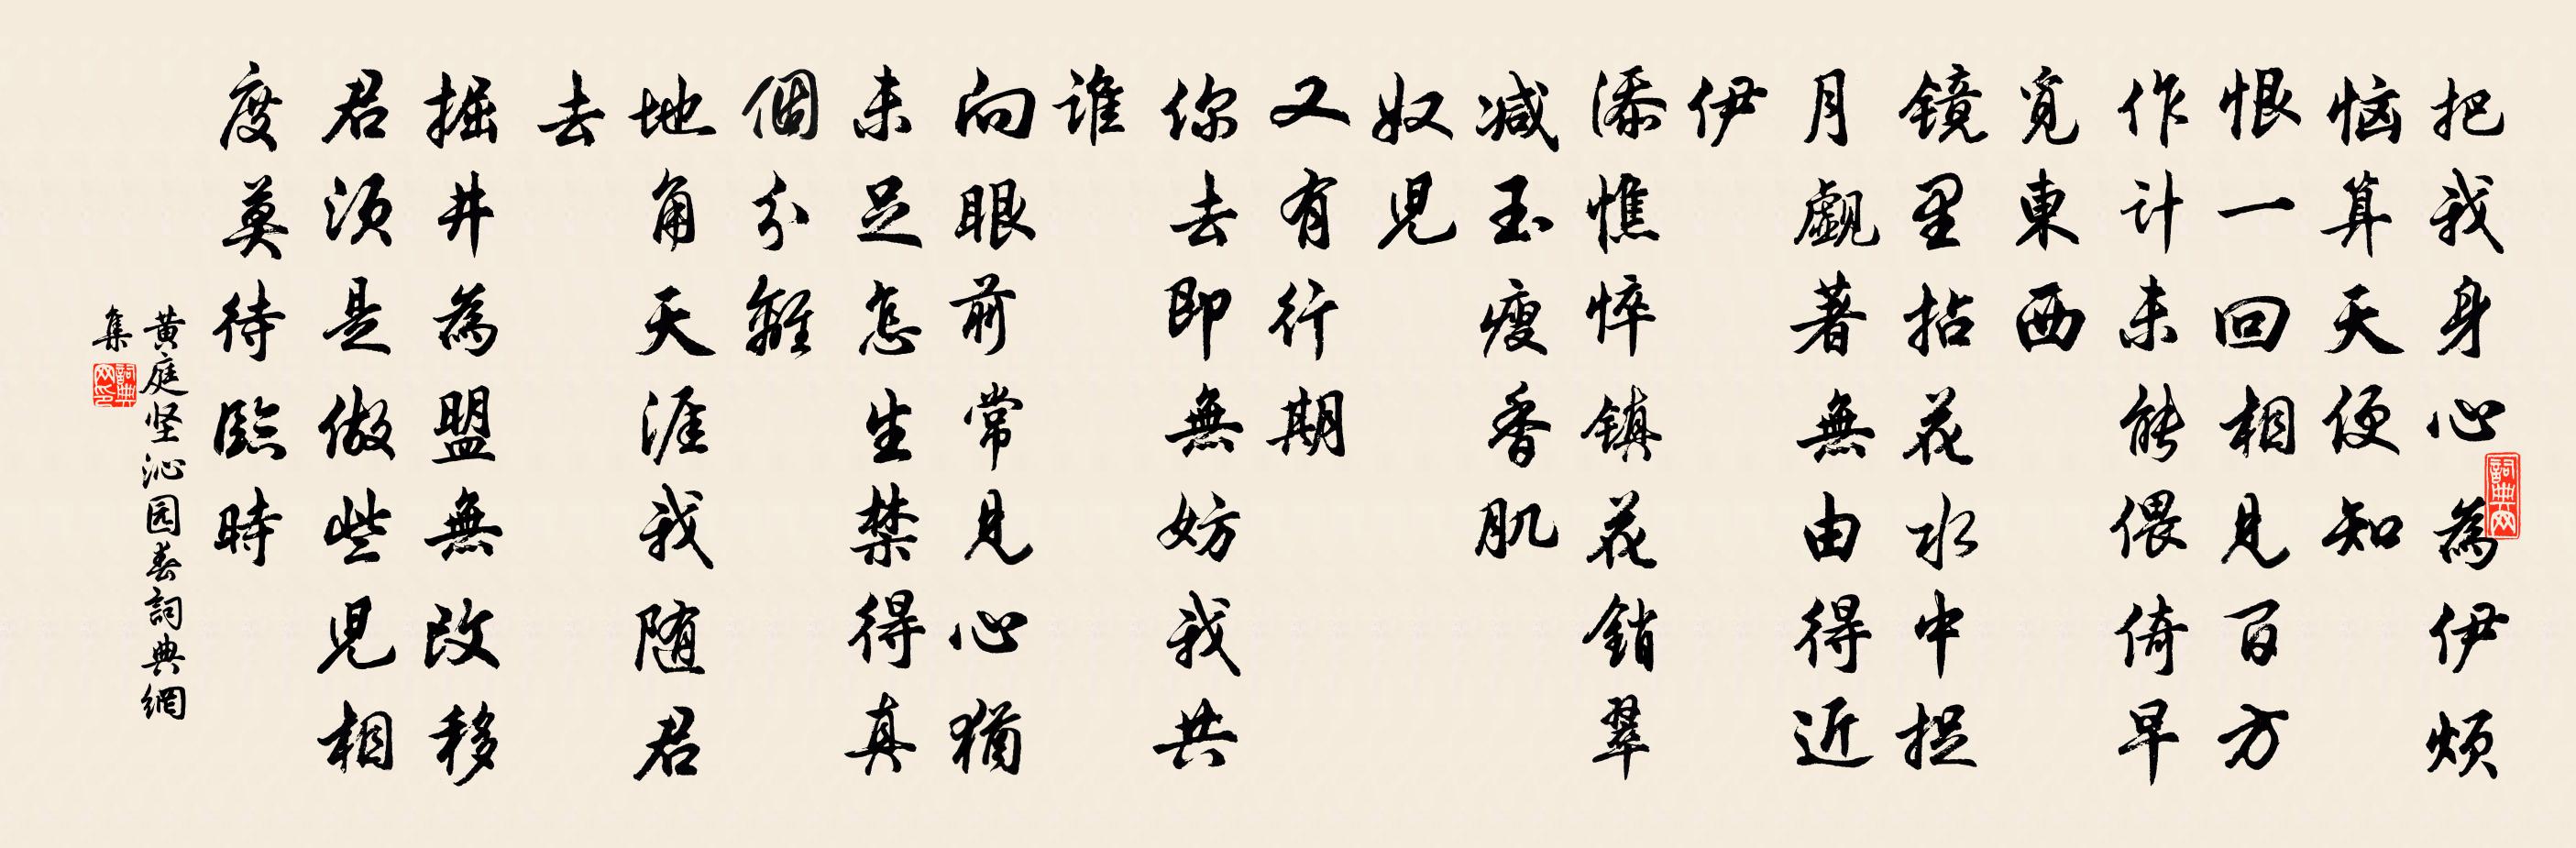 把我身心為伊烦
恼算天便知
恨一回相見百方
作计未能偎倚早
觅東西
镜里拈花水中捉
月觑著無由得近
伊
添憔悴镇花銷翠
减玉瘦香肌
奴児
又有行期
你去即無妨我共
谁
向眼前常見心猶
未足怎生禁得真
個分離
地角天涯我随君
去
掘井為盟無改移
君须是做些児相
度莫待臨時
黄庭坚沁园春詞典網
集
詞典网
詞典网印